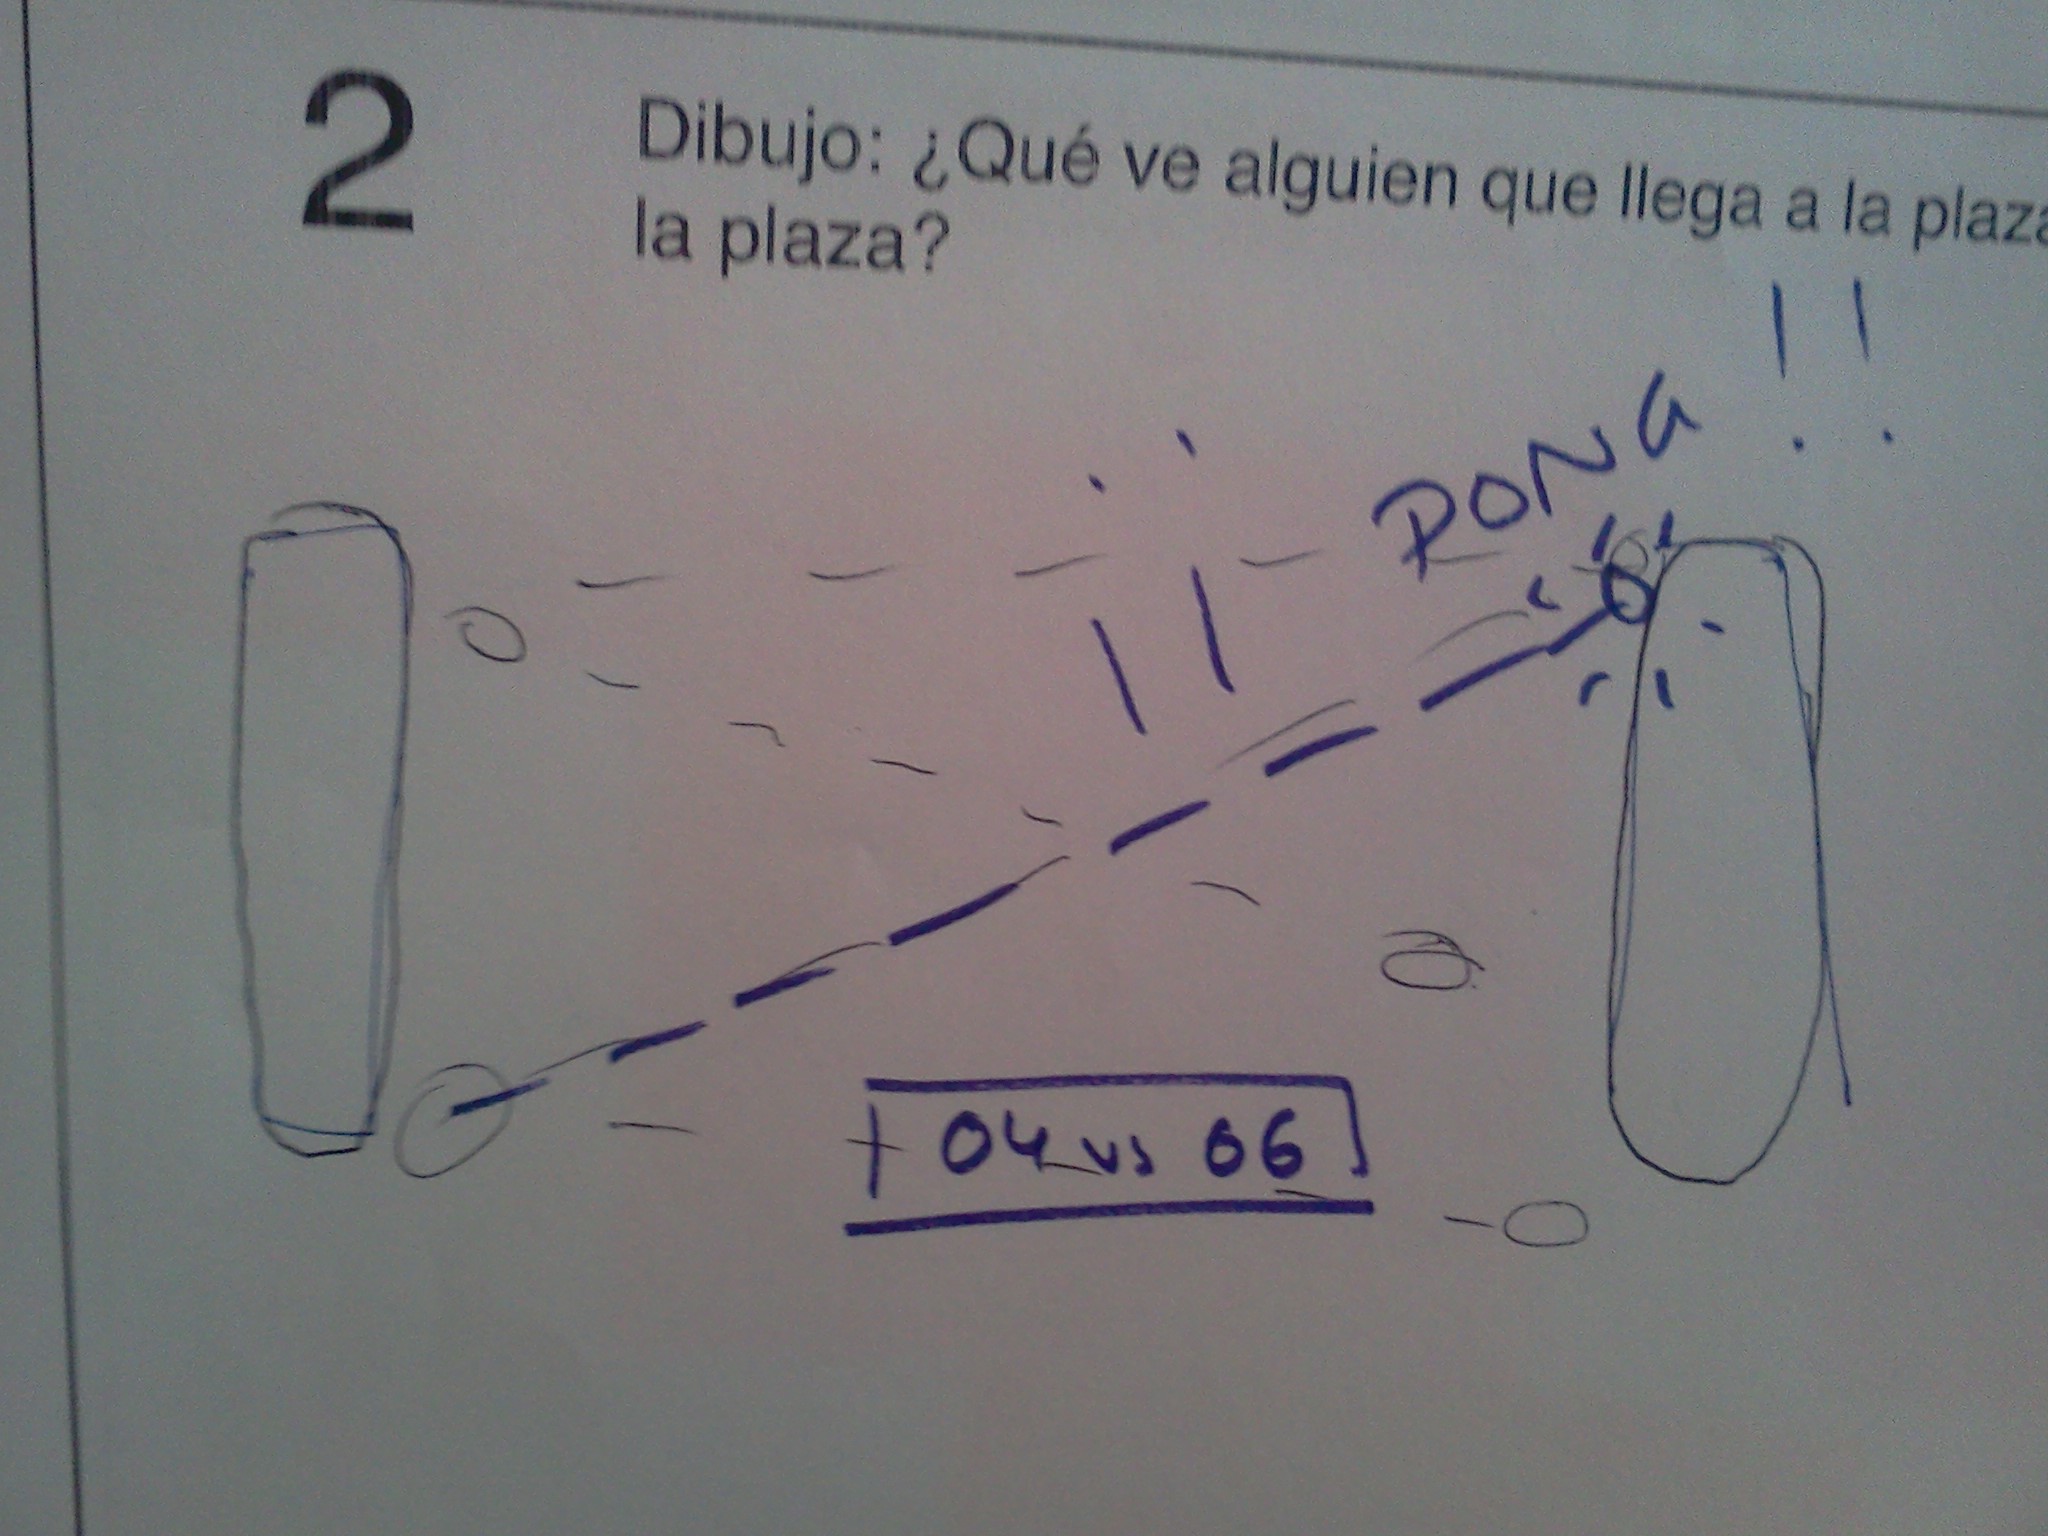 2
Dibujo: ¿Qué ve alguien que llega a la plaza
la plaza?
¡¡ PONG !!
04 vs 06